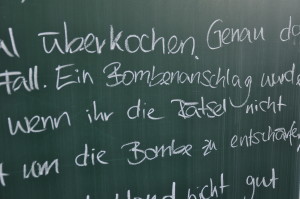 überkochen. Genau
Fall. Ein Bombenanschlag wurde
wenn ihr die Rätsel nicht
die Bombe zu entschärfe
nicht gut